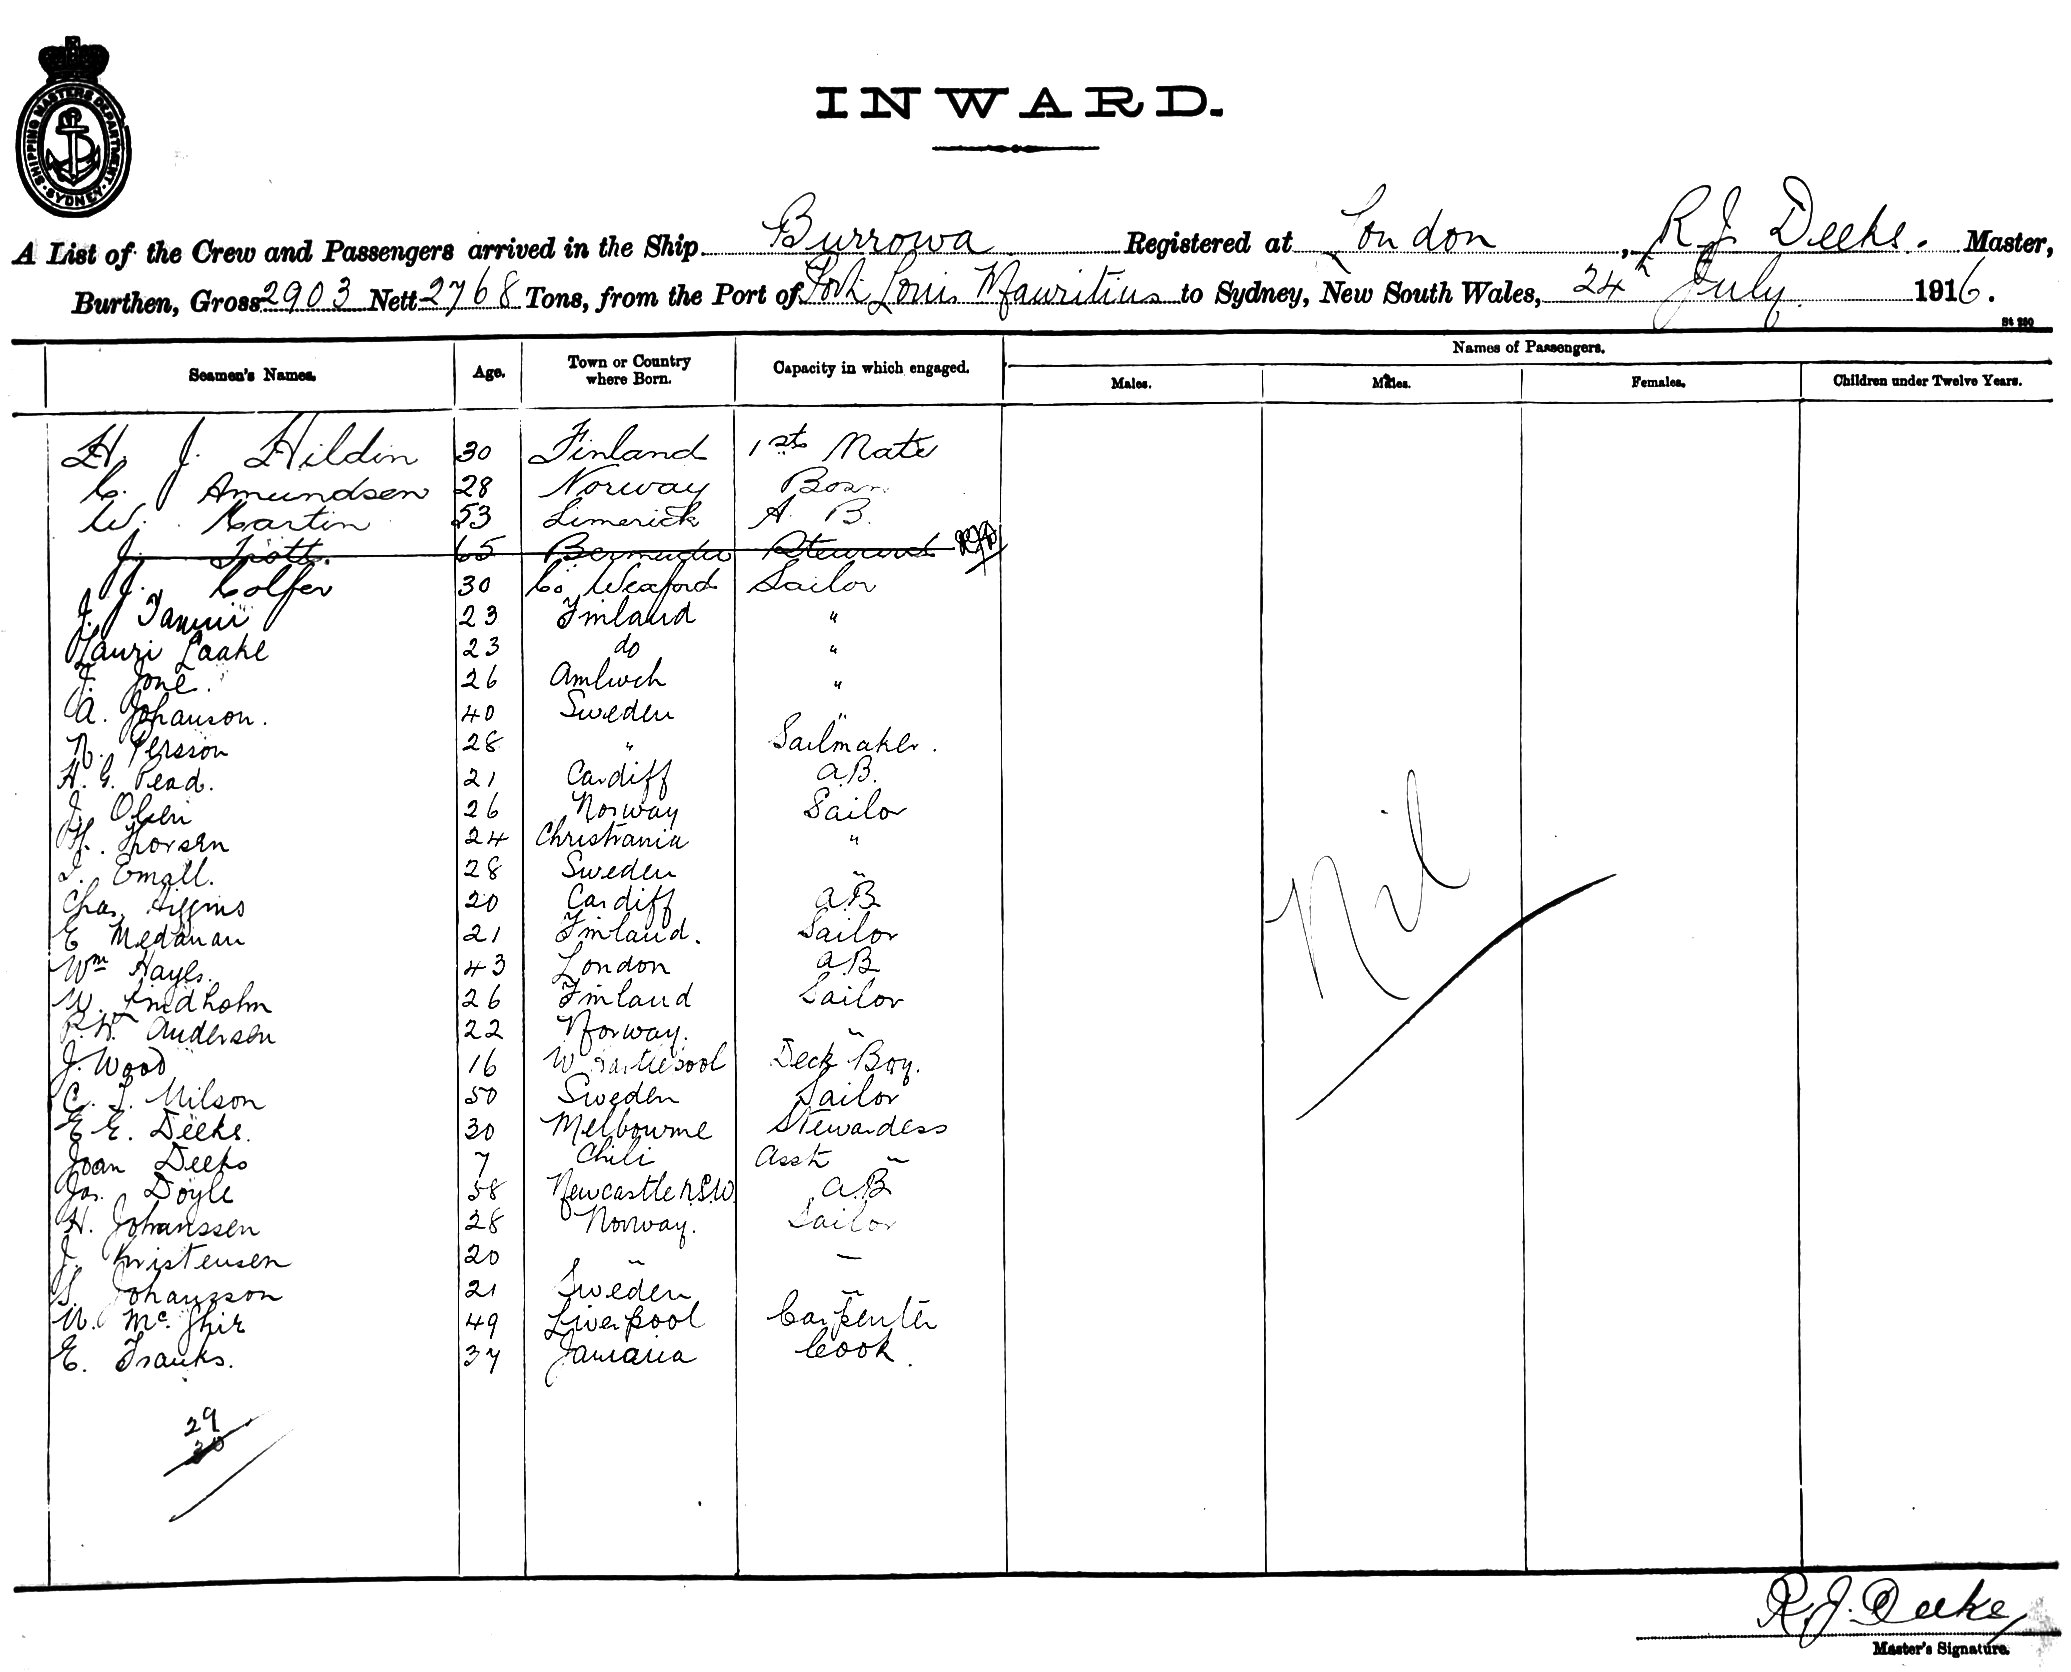 SHIPPING MASTERS DEPARTMENT · SYDNEY ·
INWARD.
A List of the Crew and Passengers arrived in the Ship Burrowa Registered at London, R J Deeks. Master,
Burthen, Gross 2903 Nett 2768 Tons, from the Port of Port Louis Mauritius to Sydney, New South Wales, 24th July 1916.
St 280
Seamen's Names. Age. Town or Country where Born. Capacity in which engaged. Names of Passengers.
Males. Males. Females. Children under Twelve Years.
H. J. Hildin 30 Finland 1st Mate
C. Amundsen 28 Norway Bosn
W. Martin 53 Limerick A. B.
J. Trott. 65 Bermuda Steward
J. Colfer 30 Co Wexford Sailor
J. Tammi 23 Finland "
Lauri Laake 23 do "
J. Jone. 26 Amlwch "
A. Johanson. 40 Sweden "
N. Persson 28 " Sailmaker.
H. G. Pead. 21 Cardiff A.B.
J. Olsen 26 Norway Sailor
H. Thorsen 24 Christiania "
Emall. 28 Sweden "
Chas Higgins 20 Cardiff A.B
E Medanan 21 Finland. Sailor
Wm Hayes. 43 London A.B
W. Lindholm 26 Finland Sailor
P. W. Andersen 22 Norway. "
J. Wood 16 W Hartlepool Deck Boy.
C. J. Nilson 50 Sweden Sailor
E E. Deeks. 30 Melbourne Stewardess
Joan Deeks 7 Chili Asst "
Jas. Doyle 58 Newcastle N.S.W. A.B
H. Johanssen 28 Norway. Sailor
J. Kristensen 20 " "
S. Johansson 21 Sweden "
N. McGhie 49 Liverpool Carpenter
E. Franks. 37 Jamaica Cook.
Nil
29
30
R. J. Deeks
Master's Signature.